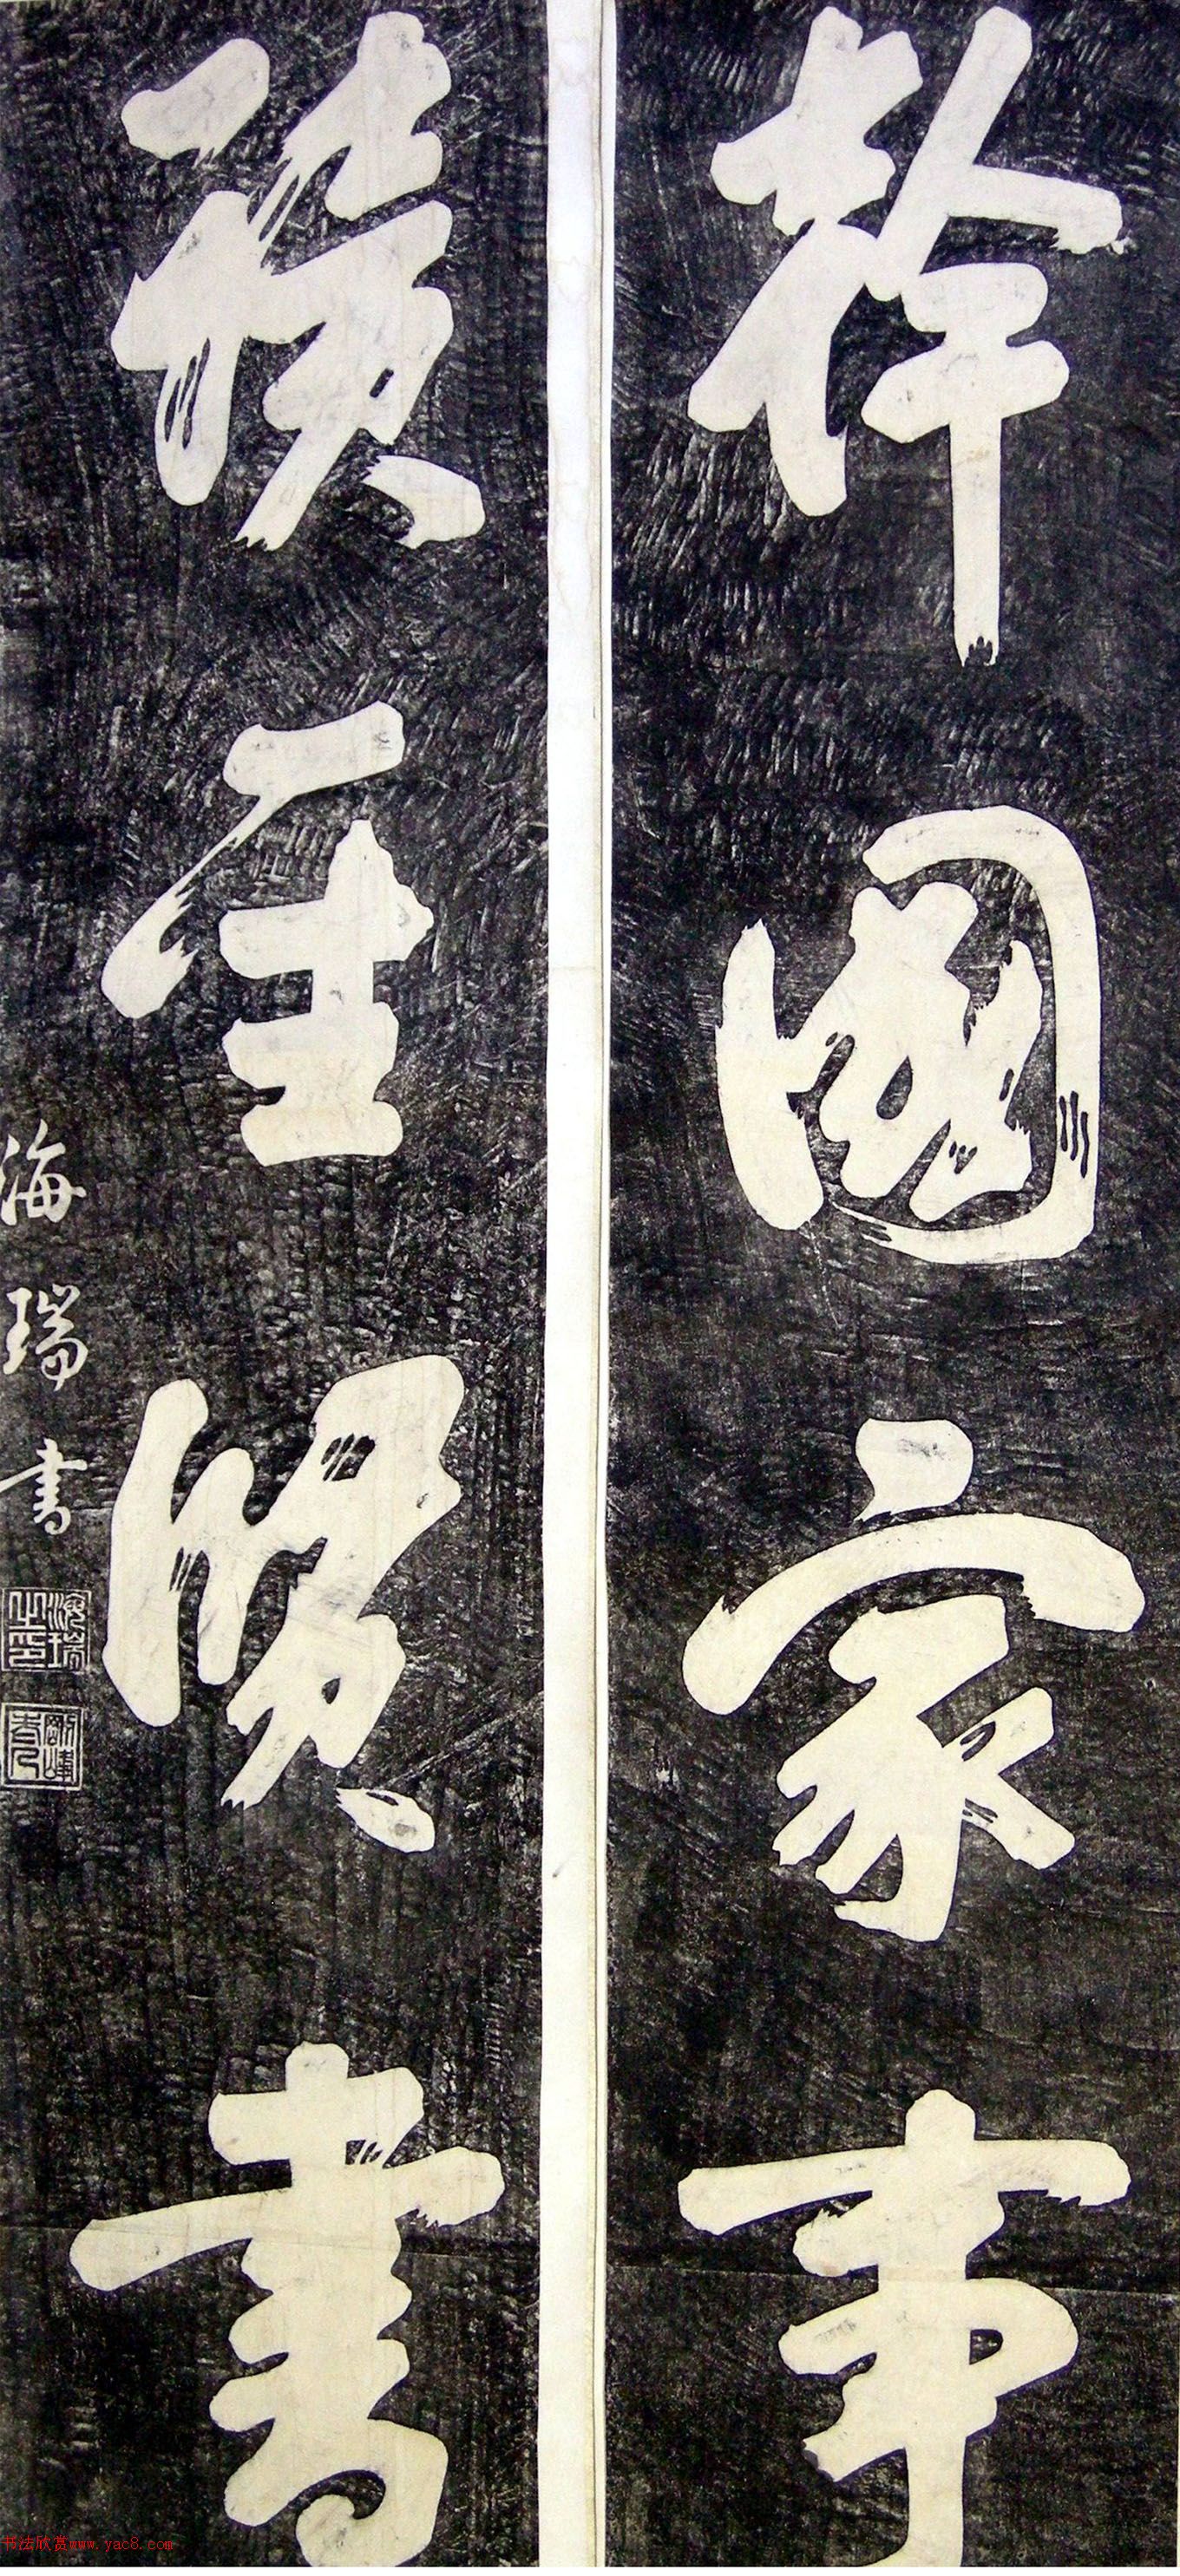 幹國家事
讀聖賢書
海瑞書
海瑞之印
剛峰
书法欣赏www.yac8.com